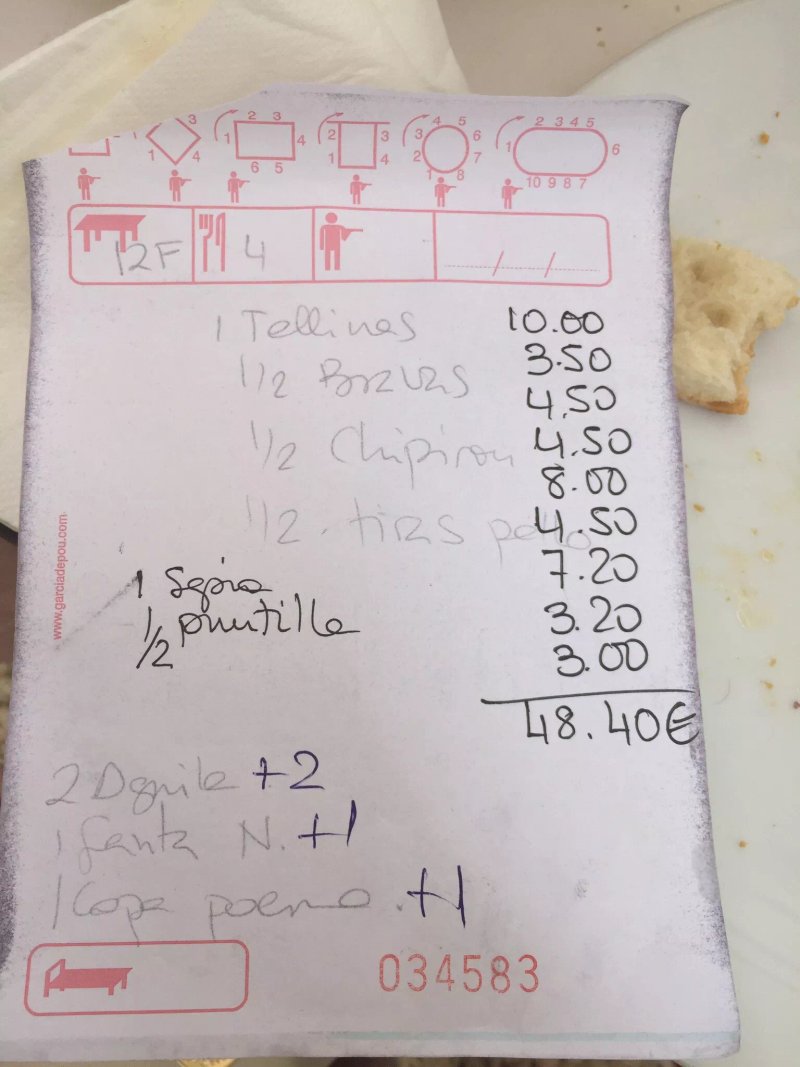 2 3 3 4 5 2 3 4 5
1 1 4 2 3 3 6 1 6
1 4 6 5 1 4 2 7 1 8 10 9 8 7
12F 4 / /
1 Tellinas 10.00
1/2 Bravas 3.50
4.50
1/2 Chipiron 4.50
8.00
1/2 tiras pollo 4.50
7.20
1 Sepia
1/2 puntilla 3.20
3.00
48.40€
www.garciadepou.com
2 Aguila +2
1 Fanta N. +1
1 Copa +1
034583